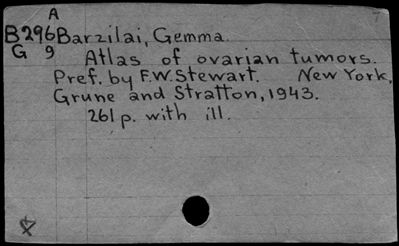 A
B296 Barzilai, Gemma.
G 9 Atlas of ovarian tumors.
Pref. by F.W. Stewart. New York,
Grune and Stratton, 1943.
261 p. with ill.